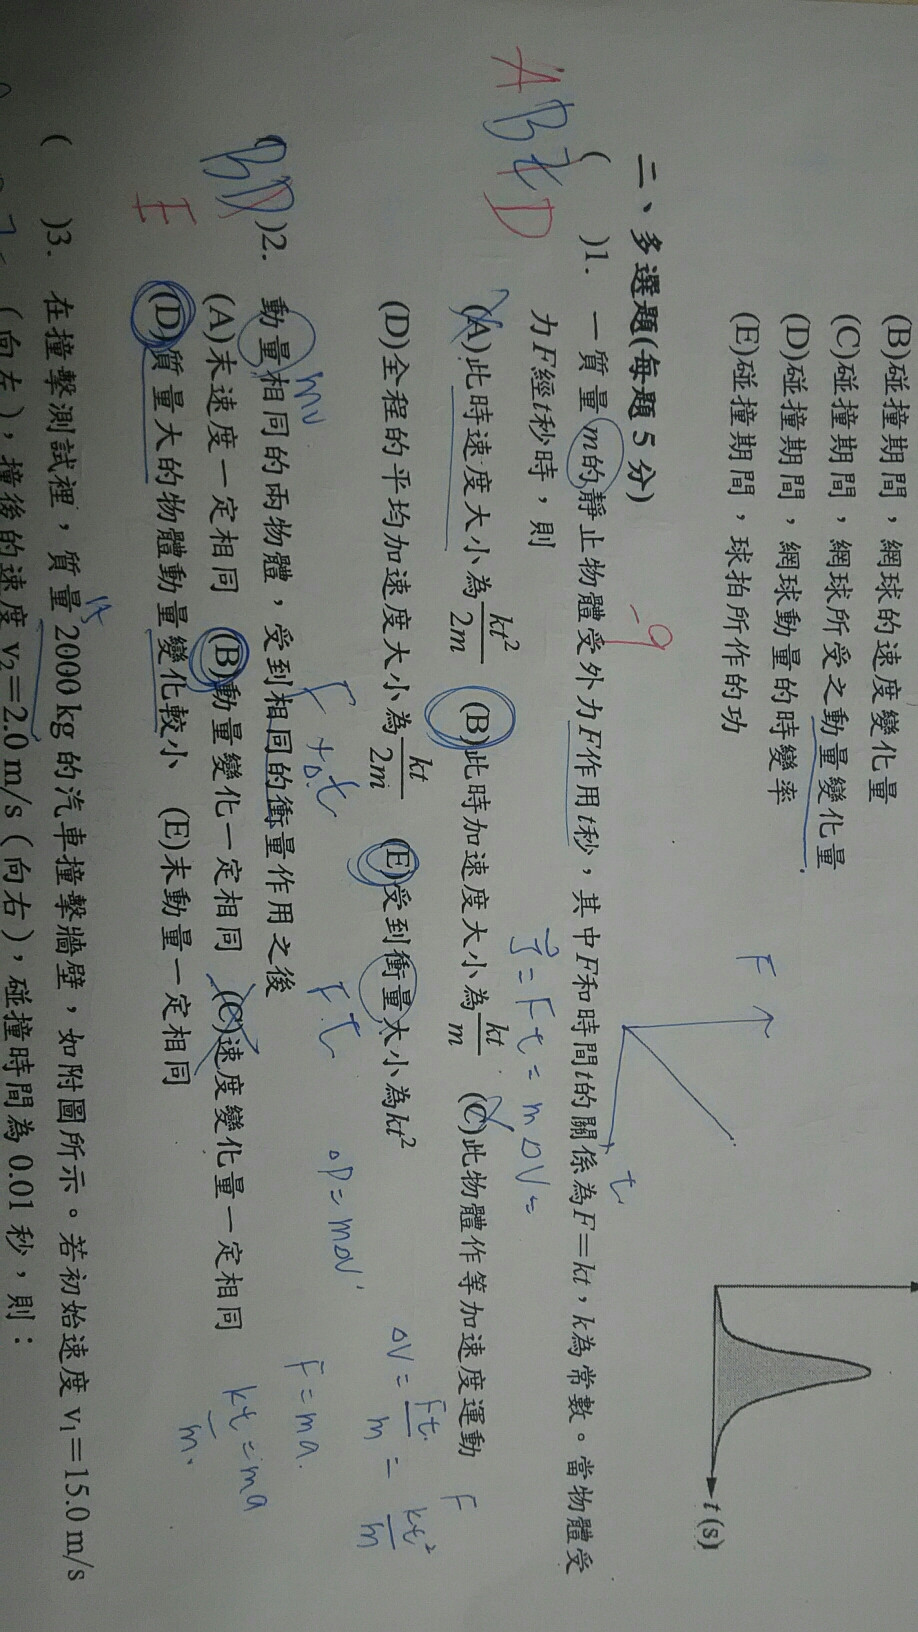 (B)碰撞期間，網球的速度變化量
(C)碰撞期間，網球所受之動量變化量
(D)碰撞期間，網球動量的時變率
(E)碰撞期間，球拍所作的功
t (s)
二、多選題(每題 5 分)
-9
F
t
A B D
( )1. 一質量m的靜止物體受外力F作用t秒，其中F和時間t的關係為F=kt，k為常數。當物體受
力F經t秒時，則
= Ft = mΔV =
(A)此時速度大小為kt²/2m (B)此時加速度大小為kt/m (C)此物體作等加速度運動
F
(D)全程的平均加速度大小為kt/2m (E)受到衝量大小為kt²
ΔV = Ft/m = kt²/m
mv
F Δt
F t
ΔP = mΔV
BD E
( )2. 動量相同的兩物體，受到相同的衝量作用之後
F = ma
(A)末速度一定相同 (B)動量變化一定相同 (C)速度變化量一定相同
kt = ma
m
(D)質量大的物體動量變化較小 (E)末動量一定相同
( )3. 在撞擊測試裡，質量 2000 kg 的汽車撞擊牆壁，如附圖所示。若初始速度 v₁=15.0 m/s
(向左)，撞後的速度 v₂=2.0 m/s (向右)，碰撞時間為 0.01 秒，則：